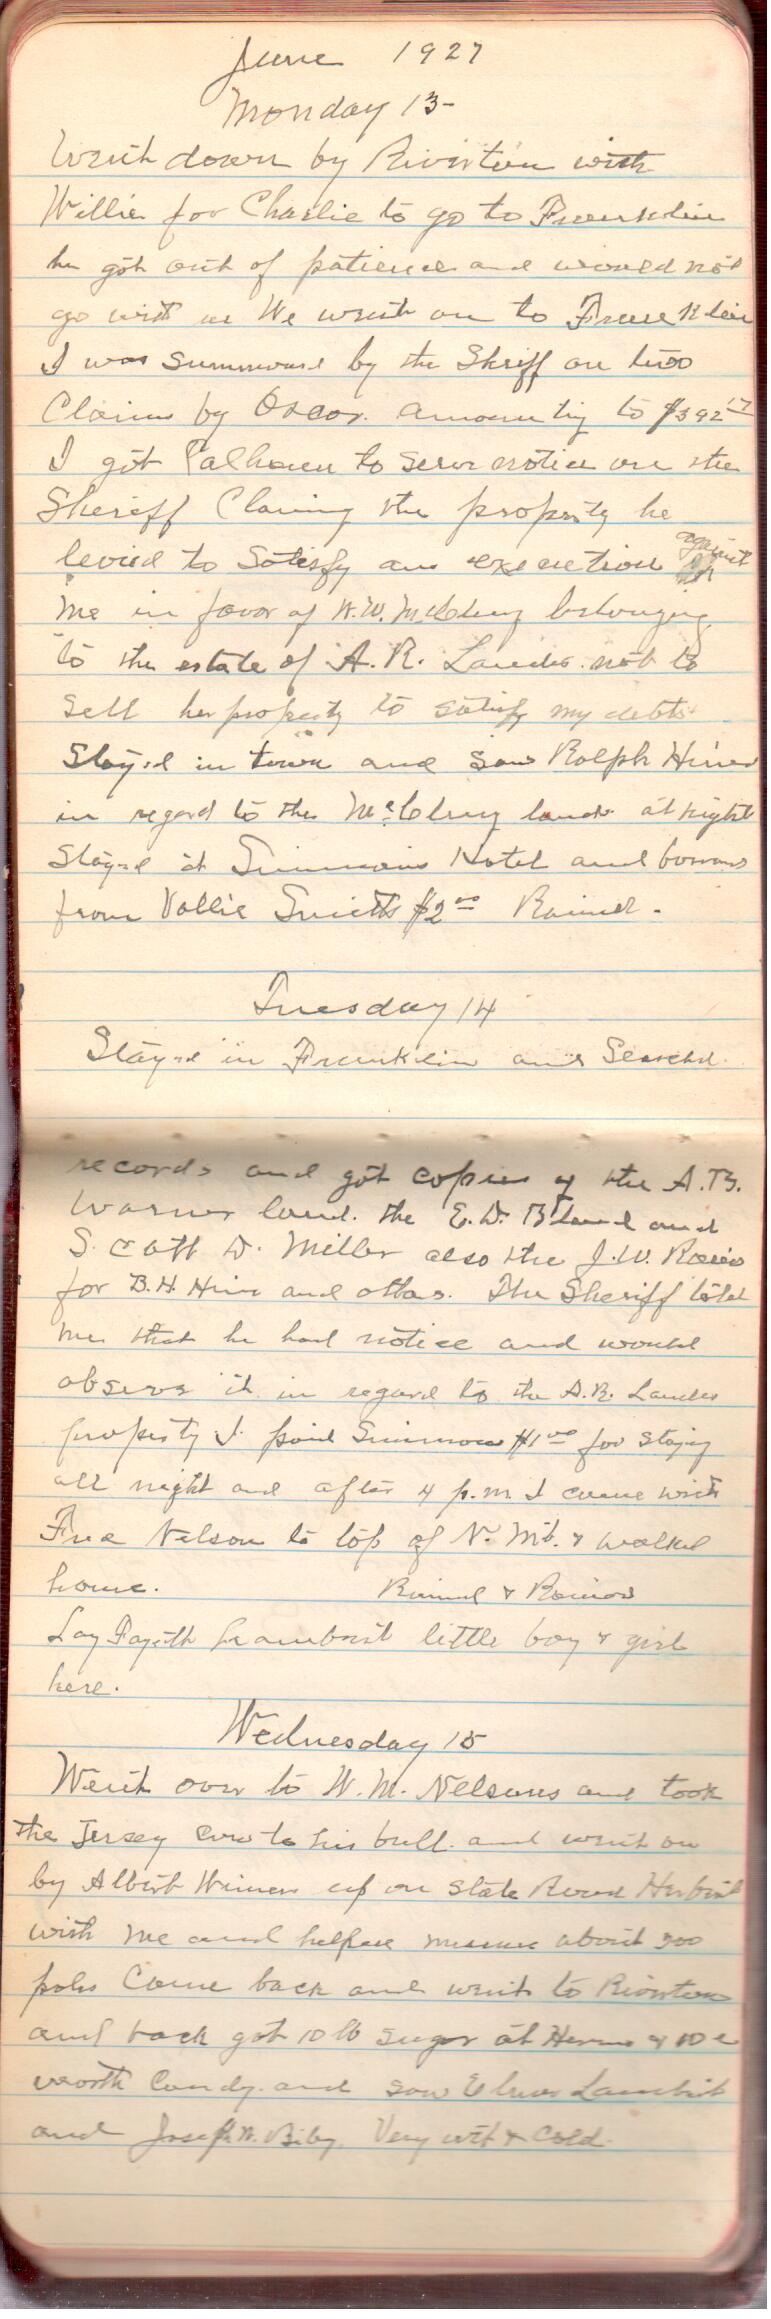 June 1927
Monday 13-
Went down by Riverton with
Willie for Charlie to go to Franklin
he got out of patience and would not
go with us We went on to Franklin
I was summonsed by the Shriff on two
Claims by Oscor. amounting to $392 17
I got Calhoun to serve notice on the
Sheriff Claiming the property he
levied to Satisfy an execution against
me in favor of H.W. McClung belonging
to the estate of A.R. Landes. not to
Sell her property to satisfy my debts
Stayed in town and saw Ralph Hiner
in regard to the McClung land. at night
Stayed at Simmons Hotel and borrowed
from Vallie Smith $2 00 Rained.
Tuesday 14
Stayed in Franklin and Searched
records and got copies of the A.B.
Warner land. the E.D. Bland and
Scott D. Miller also the J.W.
for B.H. Hiner and others. The Sheriff told
me that he had notice and would
observe it in regard to the A.R. Landes
property I paid Simmons $1 00 for staying
all night and after 4 p.m. I came with
Fred Nelson to top of N. Mt. & walked
home. Rained &
Lay Fayette Lambert little boy & girl
here.
Wednesday 15
Went over to W.M. Nelsons and took
the Jersey cow to his bull. and went on
by Albert Wimers up on State Road Herbert
with me and helped measure about 200
poles Came back and went to Riverton
and back got 10 lb sugar at & 10 c
worth Candy. and saw Elmer Lambert
and Joseph W. Biby. Very wet & Cold.